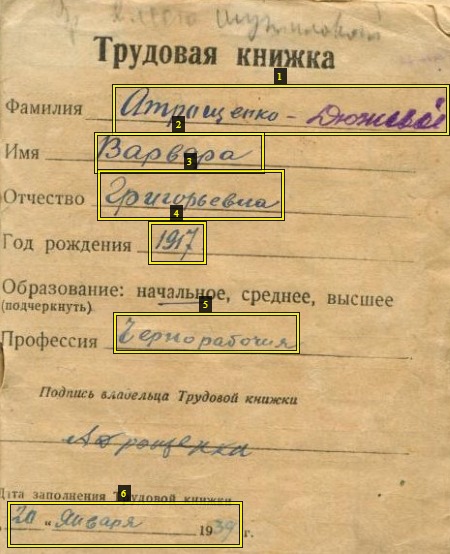 Трудовая книжка
Фамилия Атрощенко - Дюжева
Имя Варвара
Отчество Григорьевна
Год рождения 1917
Образование: начальное, среднее, высшее
(подчеркнуть)
Профессия Чернорабочия
Подпись владельца Трудовой книжки
Атрощенко
Дата заполнения Трудовой книжки
20 " Января 1939 г.
1
2
3
4
5
6